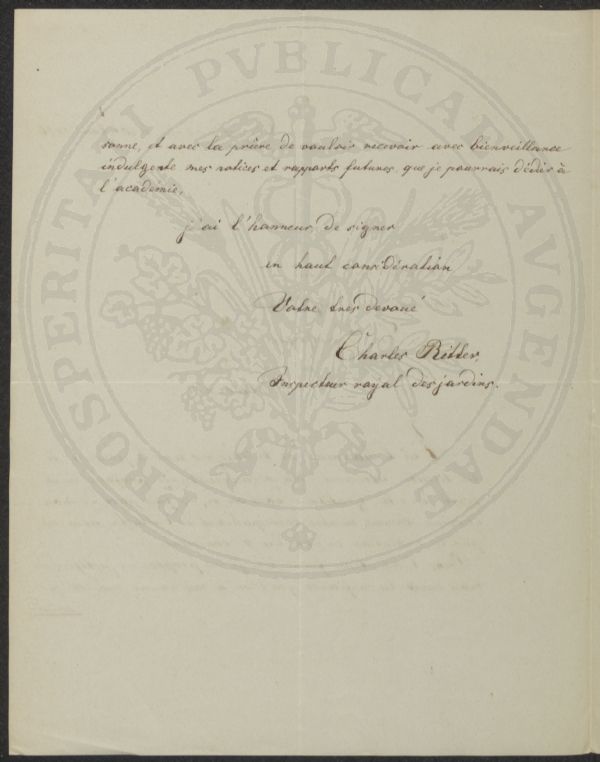 sonne, et avec la prière de vouloir recevoir avec bienveillance
indulgente mes notices et rapports futures, que je pourrais dédier à
l'académie.
j'ai l'honneur de signer
en haut considération
Votre tres devoué
Charles Ritter,
Inspecteur royal des jardins.
PROSPERITATI PVBLICAE AVGENDAE